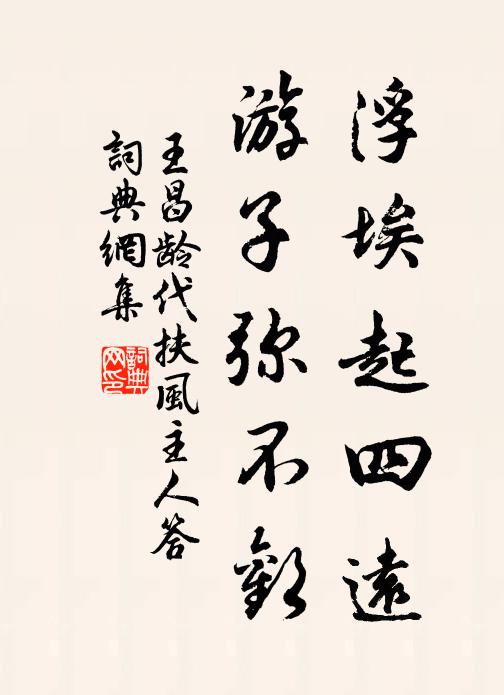 浮埃起四遠
游子弥不歡
王昌龄代扶風主人答
詞典網集
詞典網印